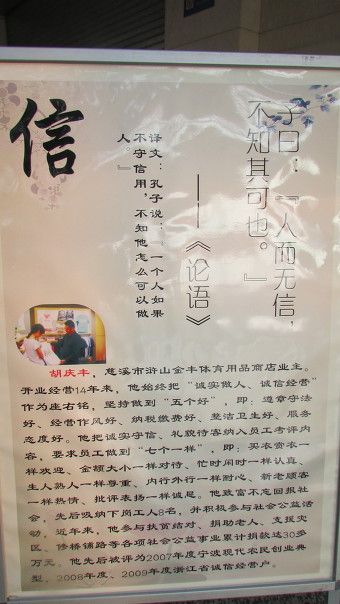 信
子曰：『人而无信，
不知其可也。』
——《论语》
译文：孔子说：『一个人如果
不守信用，不知他怎么可以做
人。』
胡庆丰，慈溪市浒山金丰体育用品商店业主。
开业经营14年来，他始终把“诚实做人、诚信经营”
作为座右铭，坚持做到“五个好”，即：遵章守法
好、经营作风好、纳税缴费好、整洁卫生好、服务
态度好。他把诚实守信、礼貌待客纳入员工考评内
容，要求员工做到“七个一样”，即：买衣卖衣一
样欢迎、金额大小一样对待、忙时闲时一样认真、
生人熟人一样尊重、内行外行一样耐心、新老顾客
一样热情、批评表扬一样诚恳。他致富不忘回报社
会，先后吸纳下岗工人8名，并积极参与社会公益活
动，近年来，他参与扶贫结对、捐助老人、支援灾
区、修桥铺路等各项社会公益事业累计捐款达30多
万元。他先后被评为2007年度宁波现代农民创业典
型，2008年度、2009年度浙江省诚信经营户。